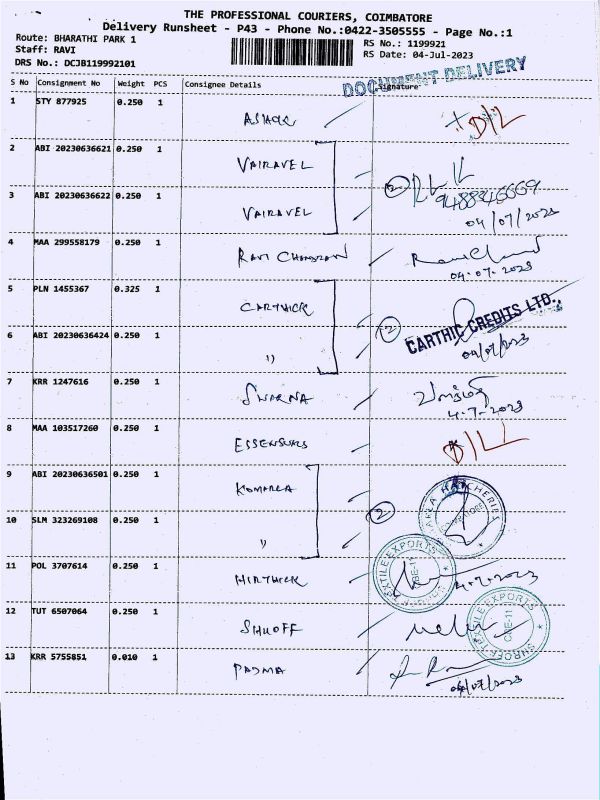 THE PROFESSIONAL COURIERS, COIMBATORE
Delivery Runsheet - P43 - Phone No.:0422-3505555 - Page No.:1
Route: BHARATHI PARK 1
Staff: RAVI
DRS No.: DCJB119992101
RS No.: 1199921
RS Date: 04-Jul-2023
DOCUMENT DELIVERY
S No Consignment No Weight PCS Consignee Details Signature
1 STY 877925 0.250 1 ASHOK
2 ABI 20230636621 0.250 1 VAIRAVEL
3 ABI 20230636622 0.250 1 VAIRAVEL 2
04/07/2023
4 MAA 299558179 0.250 1 RAVI CHANDRAN
04.07.2023
5 PLN 1455367 0.325 1 CARTHICK
CARTHIC CREDITS LTD.,
6 ABI 20230636424 0.250 1 '' 2
04/07/2023
7 KRR 1247616 0.250 1 SWARNA
4-7-2023
8 MAA 103517260 0.250 1
9 ABI 20230636501 0.250 1 KOMARLA
10 SLM 323269108 0.250 1 '' 2
HATCHERIES
11 POL 3707614 0.250 1 HIRTHICK 4.7.2023
TEXTILE EXPORTS
CBE-11
12 TUT 6507064 0.250 1 SHROFF
SHROFF TEXTILE EXPORTS
CBE-11
13 KRR 5755851 0.010 1 PADMA
04/07/2023